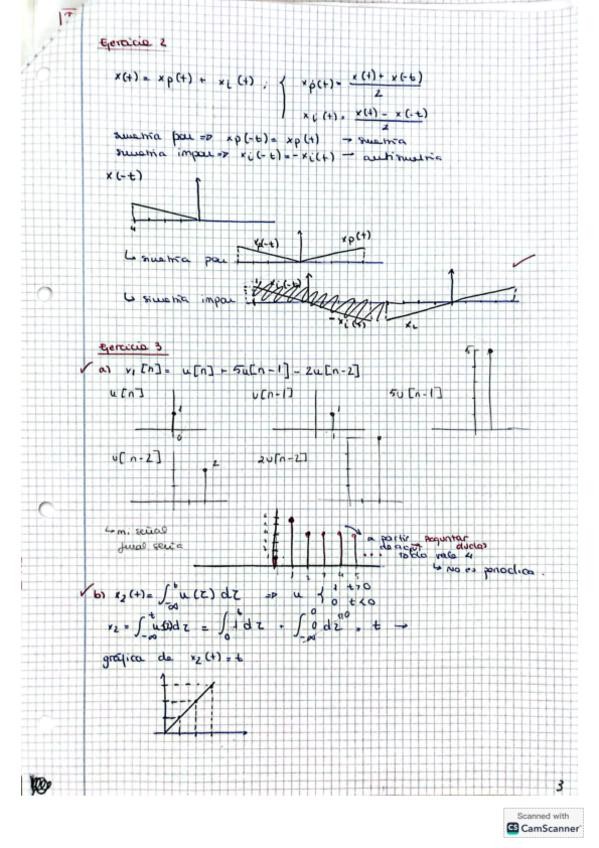 Ejercicio 2
x(t) = xp(t) + xi(t) ; { xp(t) = x(t) + x(-t) / 2
xi(t) = x(t) - x(-t) / 2
simetría par => xp(-t) = xp(t) → simetría
simetría impar => xi(-t) = -xi(t) → antisimetría
x(-t)
4
↳ simetría par xp(-t) xp(t)
↳ simetría impar xi(-t) -xi(t) xi
Ejercicio 3
a) v1[n] = u[n] + 5u[n-1] - 2u[n-2]
u[n] u[n-1] 5u[n-1]
5
1 1
0
u[n-2] 2u[n-2]
2
↳ mi señal
final sería
a partir Preguntar
de aquí dudas
todo vale 4
1 2 3 4 5
↳ No es periódica.
b) x2(t) = ∫ u(τ) dτ => u { 1 t>0
0 t<0
x2 = ∫ u(τ) dτ = ∫ 1 dτ + ∫ 0 dτ = t →
gráfica de x2(t) = t
3
Scanned with
CS CamScanner